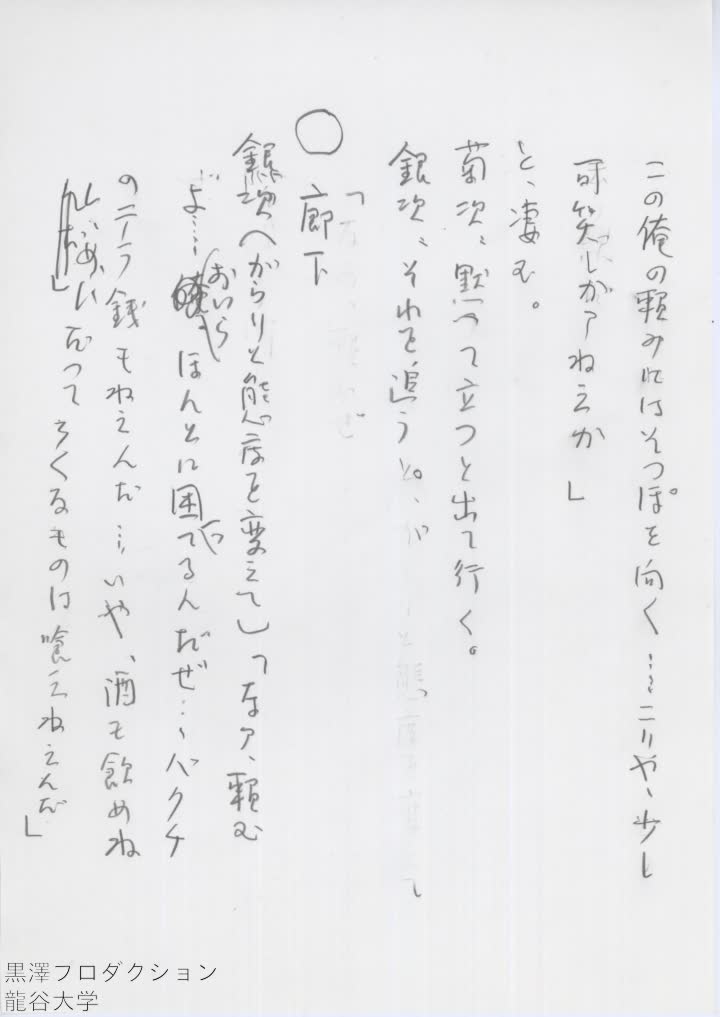 この俺の頼みにはそつぽを向く……こりや、少し
可笑しかアねえか」
と、凄む。
菊次、黙つて立つと出て行く。
銀次、それを追うと。
○ 廊下
銀次(がらりと態度を変えて)「なア、頼む
よ……おいらほんとに困つてるんだぜ……バクチ
のニラ銭もねえんだ……いや、酒も飲めね
だつて ろくるものは喰えねえんだ」
黒澤プロダクション
龍谷大学